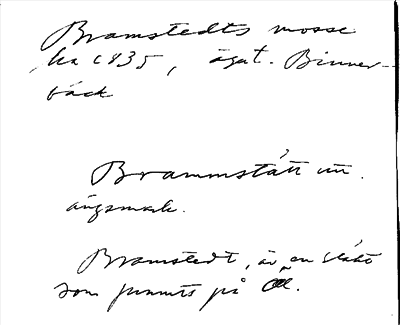 Bramstedts mosse
ha c 835, ägat. Binner-
bäck
Brammstått
ängsmark.
Bramstedt, är en släkt
som funnits på Öl.